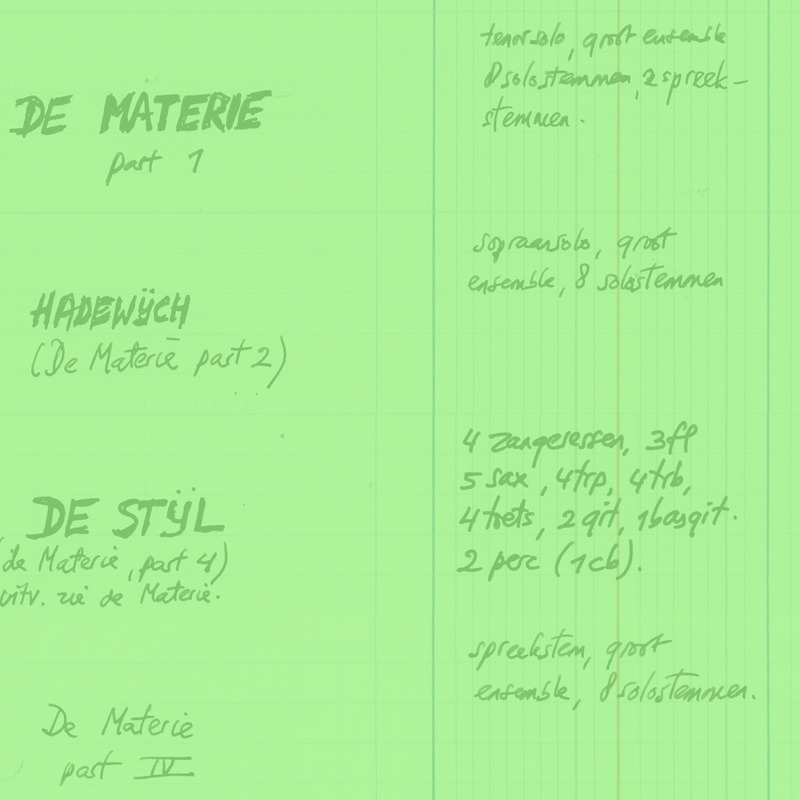 tenorsolo, groot ensemble
8 solostemmen, 2 spreek-
stemmen.
DE MATERIE
part 1
sopraansolo, groot
ensemble, 8 solostemmen
HADEWŸCH
(De Materie part 2)
4 zangeressen, 3fl
5 sax, 4trp, 4trb,
4 toets, 2 git, 1basgit.
2 perc (1cb).
DE STŸL
(de Materie, part 4)
uitv. zie de Materie.
spreekstem, groot
ensemble, 8 solostemmen.
De Materie
part IV